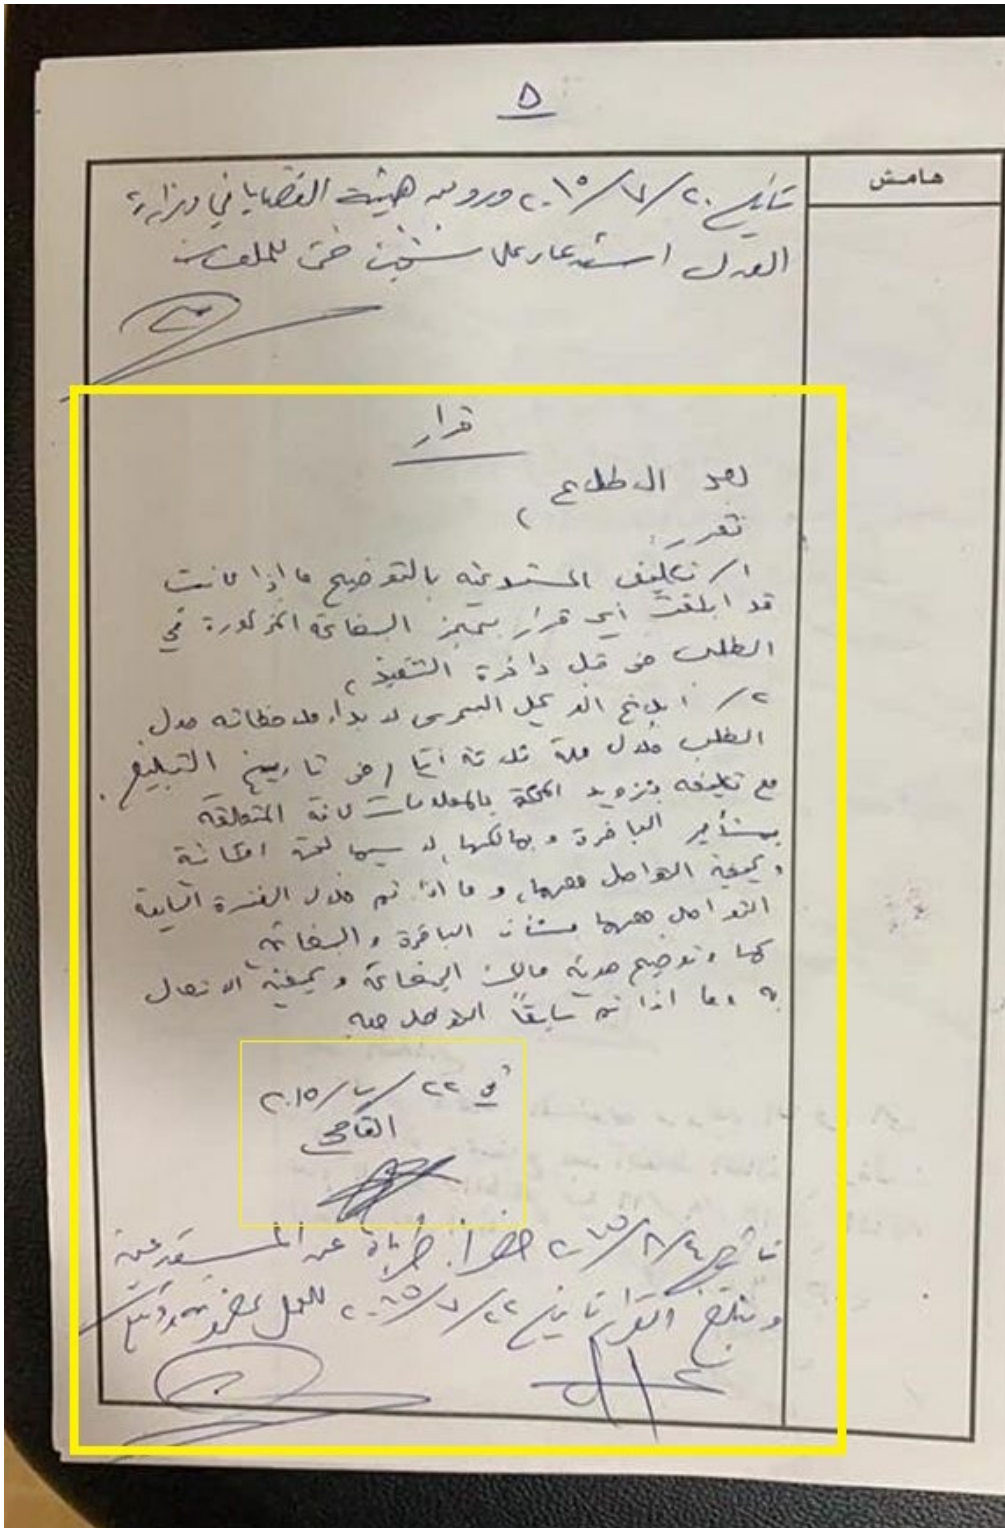 ٥
هامش
تاريخ ٢٠/٧/٢٠١٥ ورد من هيئة القضايا في وزارة
العدل استدعاء على نسختين ضمّ للملف
قرار
بعد الاطلاع،
نقرر:
١/ تكليف المستدعية بالتوضيح ما إذا كانت
قد ابلغت أي قرار بحجز البضاعة المذكورة في
الطلب من قبل دائرة التنفيذ،
٢/ ابلاغ الوكيل البحري لابداء ملاحظاته حول
الطلب خلال مهلة ثلاثة أيام من تاريخ التبليغ.
مع تكليفه بتزويد المحكمة بالمعلومات كافة المتعلقة
بمستأجر الباخرة وبمالكها، لا سيما لجهة امكانية
وكيفية التواصل معهما، وما اذا تم خلال الفترة السابقة
التواصل معهما بشأن الباخرة والبضاعة
كما وتوضيح هوية مالك البضاعة وكيفية الاتصال
به وما اذا تم سابقاً التواصل معه
في ٢٢/٧/٢٠١٥
القاضي
تاريخ ٤/٨/٢٠١٥ حضر أ. عن المستدعية
وتبلغ القرار تاريخ ٢٢/٧/٢٠١٥ للعمل بمضمونه